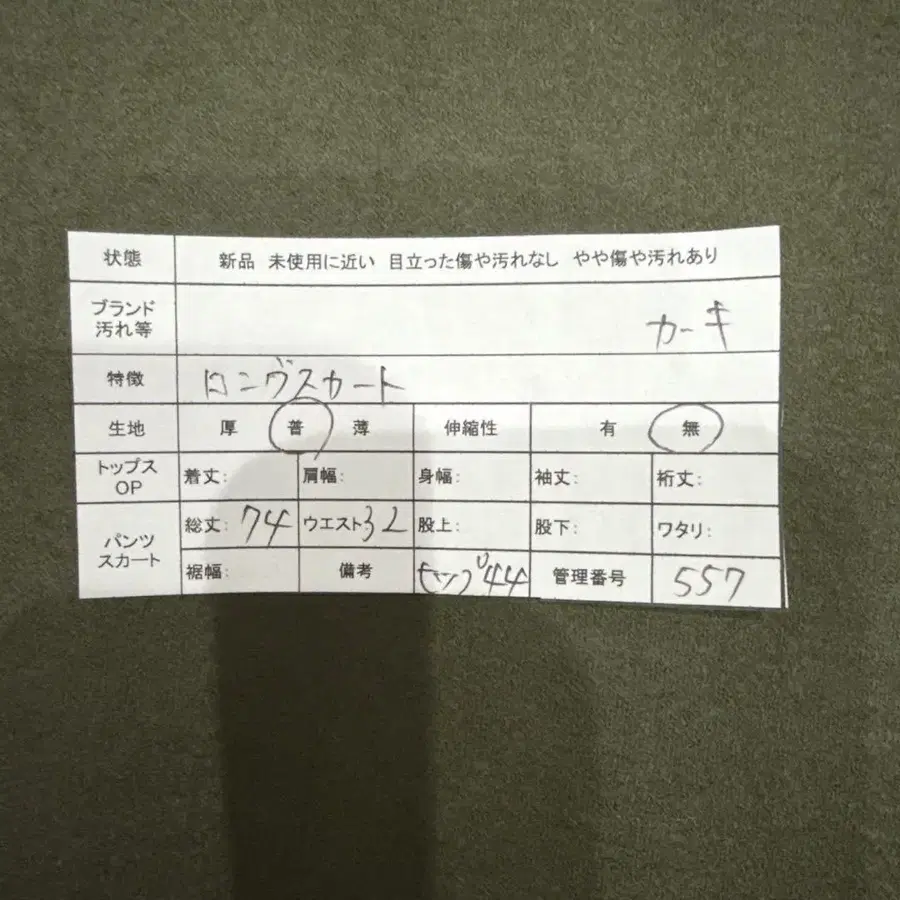 状態 新品 未使用に近い 目立った傷や汚れなし やや傷や汚れあり
ブランド
汚れ等 カーキ
特徴 ロングスカート
生地 厚 普 薄 伸縮性 有 無
トップス
OP 着丈: 肩幅: 身幅: 袖丈: 裄丈:
パンツ
スカート 総丈: 74 ウエスト32 股上: 股下: ワタリ:
裾幅: 備考 ヒップ44 管理番号 557